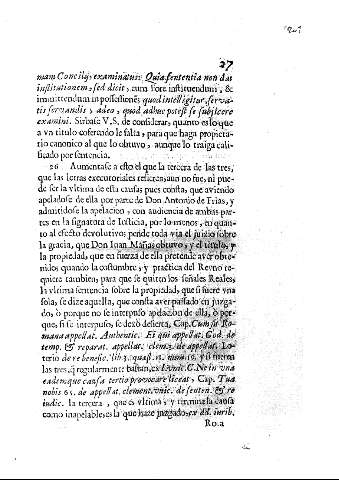 27
mam Concilij examinatur: Quia sententia non dat
institutionem, sed dicit, eum fore instituendum, &
immittendum in possessionẽ, quod intelligitur, serva-
tis servandis, adeo, quod adhuc potest se subijcere
examini. Sirbase V.S. de considerar, quanto es lo que
a vn titulo coferado le falta, para que haga proprieta-
rio canonico al que lo obtuvo, aunque lo traiga cali-
ficado por sentencia.
26 Aumentase a esto el que la tercera de las tres,
que las letras executoriales refieren, aun no fue, ni pue-
de ser la vltima de esta causa, pues consta, que aviendo
apeladose de ella por parte de Don Antonio de Frias, y
admitidose la apelacion, con audiencia de ambas par-
tes en la signatura de Iusticia, por lo menos, en quan-
to al efecto devolutivo; pende toda via el juizio sobre
la gracia, que Don Iuan Mañas obtuvo, y el titulo, y
la propiedad, que en fuerza de ella pretende aver obte-
nido; quando la costumbre, y practica del Reyno re-
quiere tambien, para que se quiten los señales Reales,
la vltima sentencia sobre la propiedad, que si fuere vna
sola, se dize aquella, que consta aver passado en juzga-
do, ò porque no se interpuso apelacion de ella, ò por-
que, si se interpuso, se dexò desierta, Cap. Cum sit Ro-
mana appellat. Authentic. Ei qui appellat. Cod. de
temp. & reparat. appellat. clem. 3. de appellat. Lo-
terio de re benefic. lib. 3. quæst. 13. num. 19. y si fueren
las tres, q̃ regularmente bastan, ex l. vnic. C. Ne in vna
eademque causa tertio provocare liceat, Cap. Tua
nobis 65. de appellat. clement. vnic. de senten. & re
iudic. la tercera, que es vltima, y termina la causa
como inapelable; es la que haze juzgado, ex dd. inrib.
Ro.a